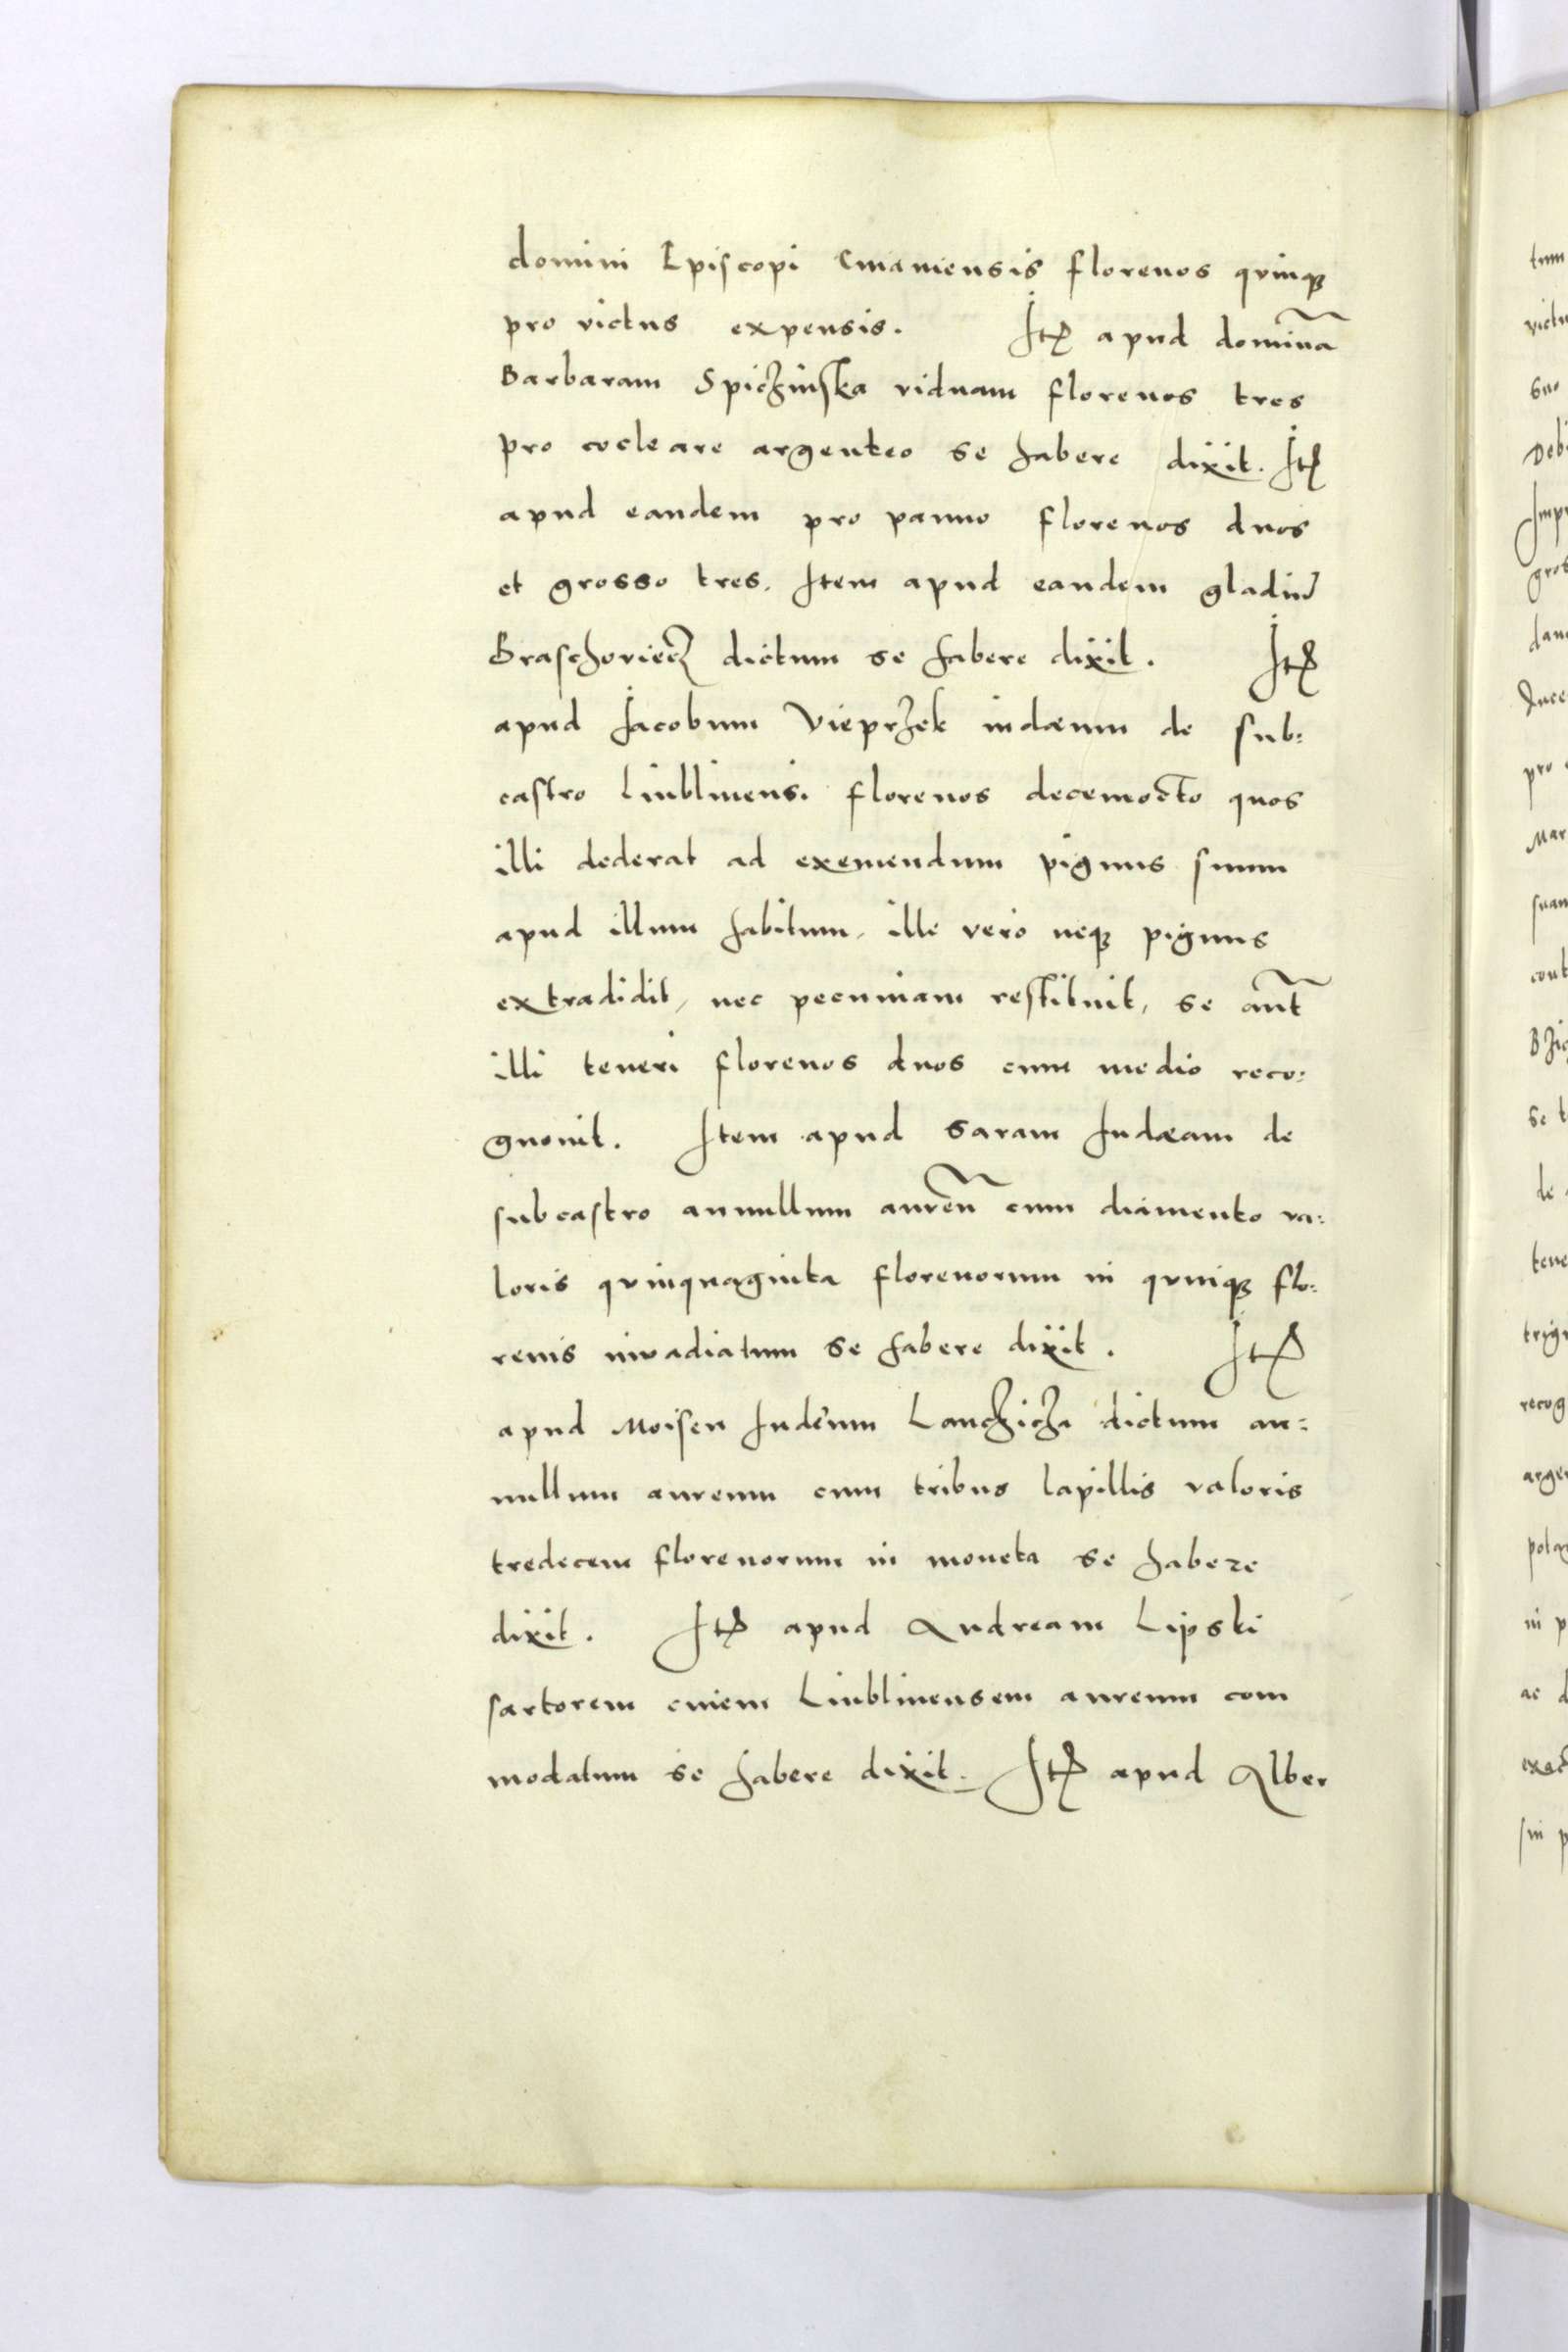 domini Episcopi Cmaniensis florenos quinqꝫ
pro victus expensis. Itꝫ apud dominā
Barbaram Spiczinska viduam florenos tres
pro cocleare argenteo se habere dixit. Itꝫ
apud eandem pro panno florenos duos
et grosso tres. Item apud eandem gladiū
Braschoviecz dictum se habere dixit. Itꝫ
apud Jacobum Vieprzek iudæum de sub:
castro Liublinens. florenos decemocto quos
illi dederat ad exemendum pignus suum
apud illum habitum, ille vero neqꝫ pignus
extradidit, nec pecuniam restituit, se aut̄
illi teneri florenos duos cum medio reco:
gnouit. Item apud Saram Iudæam de
subcastro annullum aureū cum diamento va:
loris quinquaginta florenorum in quinqꝫ flo:
renis invadiatum se habere dixit. Itꝫ
apud Moisen Iudeum Lanczicza dictum an:
nullum aureum cum tribus lapillis valoris
tredecem florenorum in moneta se habere
dixit. Itꝫ apud Andream Lipski
sartorem ciuem Liublinensem aureum com
modatum se habere dixit. Itꝫ apud Alber